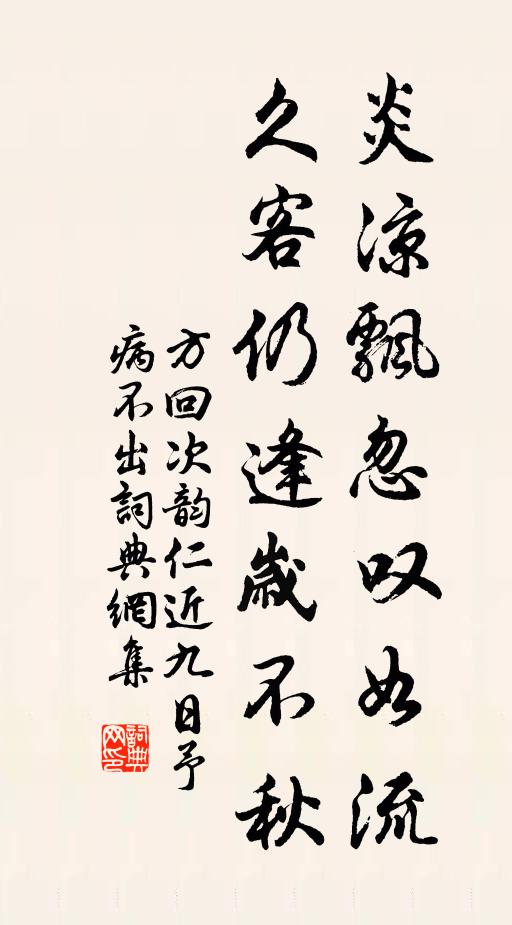 炎涼飄忽叹如流
久客仍逢歲不秋
方回次韵仁近九日予
病不出詞典網集
詞典
网印